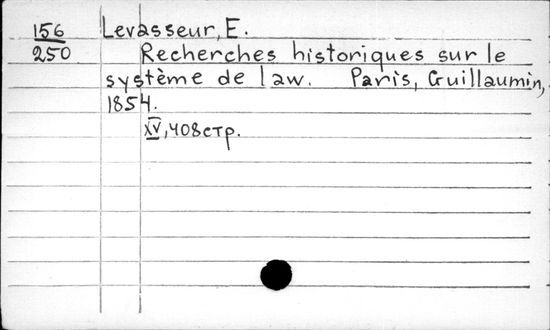 156 Levasseur, E.
250 Recherches historiques sur le
système de law. Paris, Guillaumin,
1854.
XV, 408 стр.